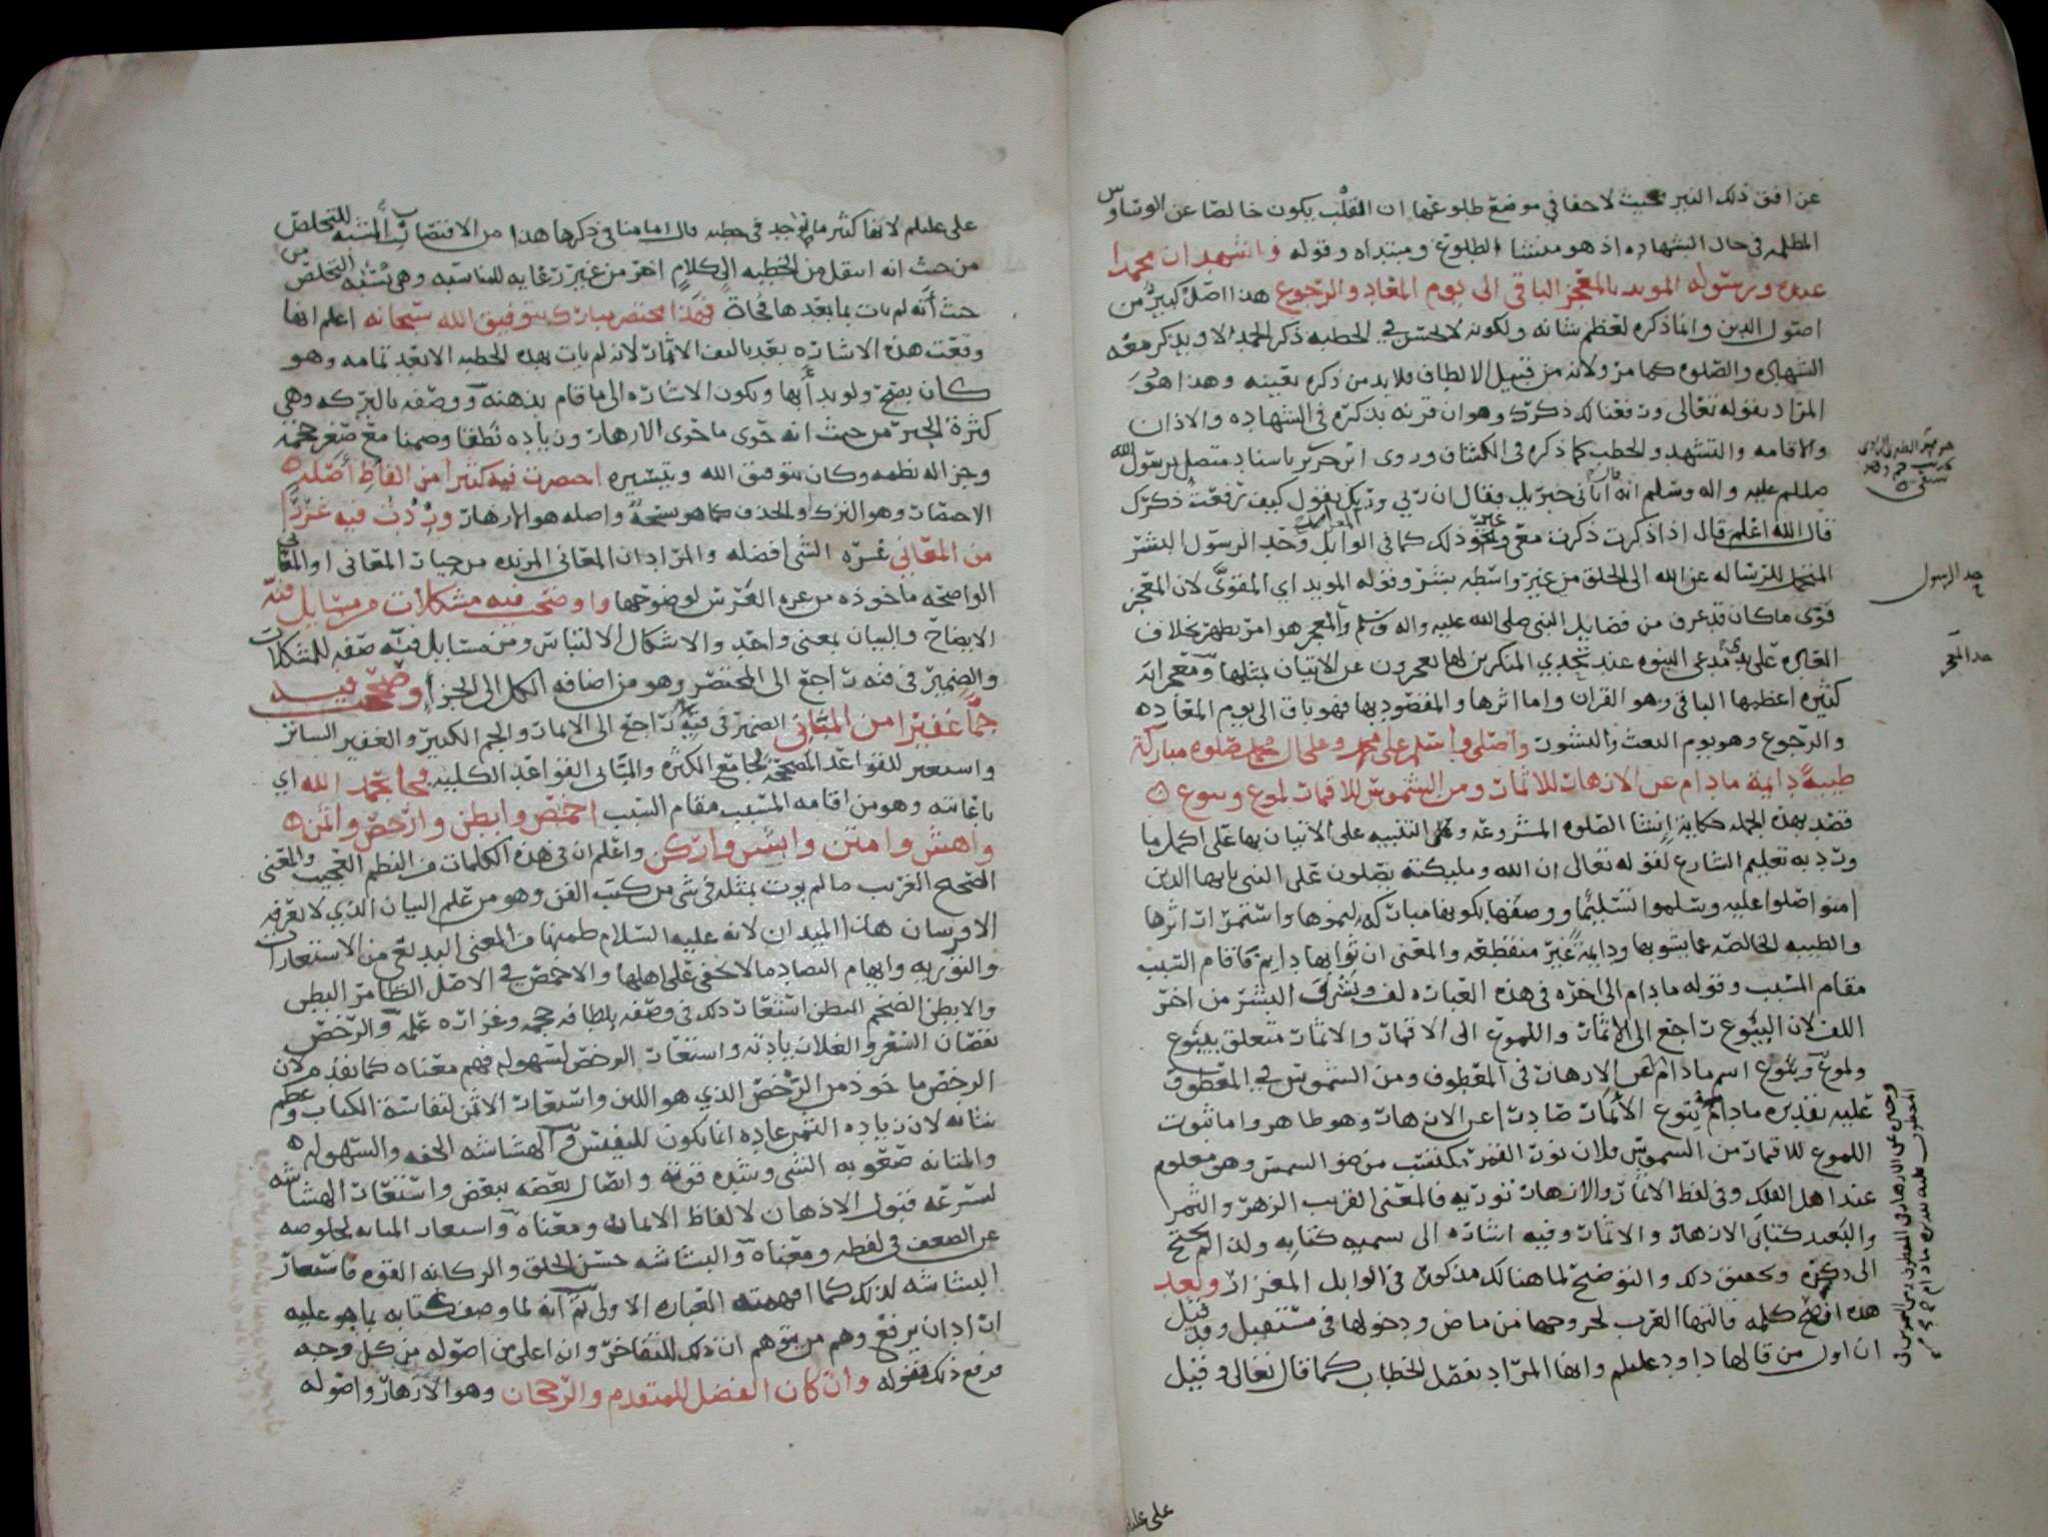 عن افق ذلك النير بحيث لاحفا في موضع طلوعها ان القلب يكون خالصا عن الوساوس
المظلمه في حال الشهاده اذ هو منشا الطلوع ومبتداه وقوله واشهد ان محمدا
عبده ورسوله المويد بالمعجز الباقي الى يوم المعاد والرجوع هذا اصل كبير من
اصول الدين وانما ذكره لعظم شانه ولكونه لا يحسن في الخطبه ذكر الحمد الا ويذكر معه
الشهاده والصلوه كما مر ولانه من قبيل الالطاف فلا بد من ذكره بعينه وهذا هو
المراد بقوله تعالى ورفعنا لك ذكرك وهو ان قرنه بذكره في الشهاده والاذان
والاقامه والتشهد والخطب كما ذكره في الكشاف وروى ابن جرير باسناد متصل برسول الله
صللم عليه واله وسلم انه قال اتاني جبريل فقال ان ربي وربك يقول كيف رفعت ذكرك
قال الله اعلم قال اذا ذكرت ذكرت معي ونحو ذلك كما في الوابل وحد الرسول البشر
المتحمل للرساله عن الله الى الخلق من غير واسطه بشر وقوله المويد اي المقوى لان المعجز
قوى ما كان قد عرف من فضايل النبي صلى الله عليه واله وسلم والمعجز هو امر يظهر بخلاف
العاده على يدي مدعي النبوه عند تحدي المنكرين لها يعجزون عن الاتيان بمثلها ومعجزاته
كثيره اعظمها الباقي وهو القران واما اثرها والمقصود بها فهو باق الى يوم المعاد ه
والرجوع وهو يوم البعث والنشور واصلي واسلم على محمد وعلى ال محمد صلوه مباركة
طيبة دايمة ما دام عن الازهار للاثمار ومن الشموس للاقمار لموع وينوع ه
قصد بهذه الجمله حكاية انشا الصلوه المشروعه وعلى التنبيه على الاتيان بها على اكمل ما
ورد به تعليم الشارع لقوله تعالى ان الله ومليكته يصلون على النبي يا ايها الذين
امنوا صلوا عليه وسلموا تسليما ووصفها بكونها مباركه لنموها واستمرار اثرها
والطيبه الخالصه عما يشوبها ودايمة غير منقطعه والمعنى ان ثوابها دايم فاقام السبب
مقام المسبب وقوله ما دام الى اخره في هذه العباره لف ونشر في النشر من اخر
اللف لان الينوع راجع الى الاثمار واللموع الى الاقمار والاثمار متعلق بينوع
ولموع وينوع اسم ما دام عن الازهار في المعطوف ومن الشموس في المعطوف
عليه تقديره ما دام ينوع الاثمار صادرا عن الازهار وهو ظاهر واما ثبوت
اللموع للاقمار من الشموس فلان نور القمر مكتسب من ضو الشمس وهو معلوم
عند اهل الفلك وفي لفظ الاثمار والازهار توريه فالمعنى القريب الزهر والثمر
والبعيد كتابي الازهار والاثمار وفيه اشاره الى تسميه كتابه ولذا لم يحتج
الى ذكره وتحقيق ذلك والتوضيح لما هنالك مذكور في الوابل المغزار وبعد
هذه افصح كلمه قالتها العرب لخروجها من ماض ودخولها في مستقبل وقد قيل
ان اول من قالها داود عليلم وانها المراد بفصل الخطاب كما قال تعالى وقيل
حد الرسول
حد المعجز
على عليلم
على عليلم لانها كثير ما توجد في خطبه قال امامنا في ذكرها هذا من الاقتضاب المشبه للتخلص
من حيث انه انتقل من الخطبه الى كلام اخر من غير رعايه للمناسبه وهي تشبه التخلص من
حيث انه لم يات بما بعدها فجاة فهذا مختصر مبارك بتوفيق الله سبحانه اعلم انها
وقعت هذه الاشاره بعد تاليف الاثمار لانه لم يات بهذه الخطبه الا بعد تمامه وهو
كان يصح ولو بدأ بها وتكون الاشاره الى ما قام بذهنه ووصفه بالبركه وهي
كثرة الخير من حيث انه حوى ما حوى الازهار وزياده نطقا وضمنا مع صغر حجمه
وجزاله نظمه وكان بتوفيق الله وتيسيره اختصرت فيه كثيرا من الفاظ اصله ه
الاختصار وهو الترك والحذف كما هو سبحه واصله هو الازهار وزدت فيه غررا
من المعاني غره الشي افضله والمراد ان المعاني المزيده من خيار المعاني او المعاني
الواضحه ماخوذه من غره الفرس لوضوحها واوضحت فيه مشكلات من مسايل فنه
الايضاح والبيان بمعنى واحد والاشكال الالتباس ومن مسايل فنه صفه للمشكلات
والضمير في فنه راجع الى المختصر وهو من اضافه الكل الى الجزا وصححت فيه
جما غفيرا من المباني الضمير في فيه راجع الى الاثمار والجم الكبير والغفير الساتر
واستعير للقواعد المصححه بجامع الكثره والمباني القواعد الكليه فجا بحمد الله اي
باعانته وهو من اقامه المسبب مقام السبب اخمص وابطن وارخص واثمن ه
واهش وامتن وابش واركن واعلم ان في هذه الكلمات من النظم العجيب والمعنى
الصحيح الغريب ما لم يوت بمثله في شي من كتب الفن وهو من علم البيان الذي لا يعرفه
الا فرسان هذا الميدان لانه عليه السلام ضمنها من المعنى البديع من الاستعارات
والتوريه وايهام التضاد ما لا يخفى على اهلها والاخمص في الاصل الضامر البطن
والابطن الضخم البطن استعار ذلك في وصفه بلطافه حجمه وغزاره علمه والرخص
نقصان السعر والغلا زيادته واستعار الرخص لسهوله فهم معناه كما تقدم لان
الرخص ماخوذ من الرخص الذي هو اللين واستعار الاثمن لنفاسة الكتاب وعظم
شانه لان زياده الثمن عاده انما تكون للنفيس والهشاشه الخفه والسهوله ه
والمتانه صعوبه الشي وشده قوته واتصال بعضه ببعض واستعار الهشاشه
لسرعه قبول الاذهان لالفاظ الاثمار ومعناه واستعار المتانه لخلوصه
عن الضعف في لفظه ومعناه والبشاشه حسن الخلق والركانه القوه فاستعار
البشاشه لذلك كما افهمته العباره الاولى ثم انه لما وصف كتابه بما هو عليه
اراد ان يرفع وهم من يتوهم ان ذلك للتفاخر وانه اعلى من اصوله من كل وجه
فدفع ذلك بقوله وان كان الفضل للمتقدم والرجحان وهو الازهار واصوله